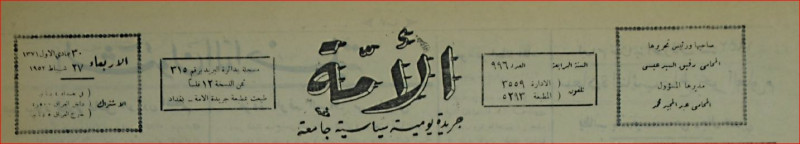 صاحبها ورئيس تحريرها
المحامي رفيق السيد عيسى
مديرها المسؤول
المحامي عبد المجيد محمد
السنة الرابعة العدد ٩٩٦
تلفون ( الادارة ٣٥٥٩
( المطبعة ٥٢٩٣
الأمّة
جريدة يومية سياسية جامعة
مسجلة بدائرة البريد برقم ٣١٥
ثمن النسخة ١٢ فلساً
طبعت بمطبعة جريدة الامة - بغداد
الاربعاء
٣٠ جمادي الاول ١٣٧١
٢٧ شباط ١٩٥٢
الاشتراك